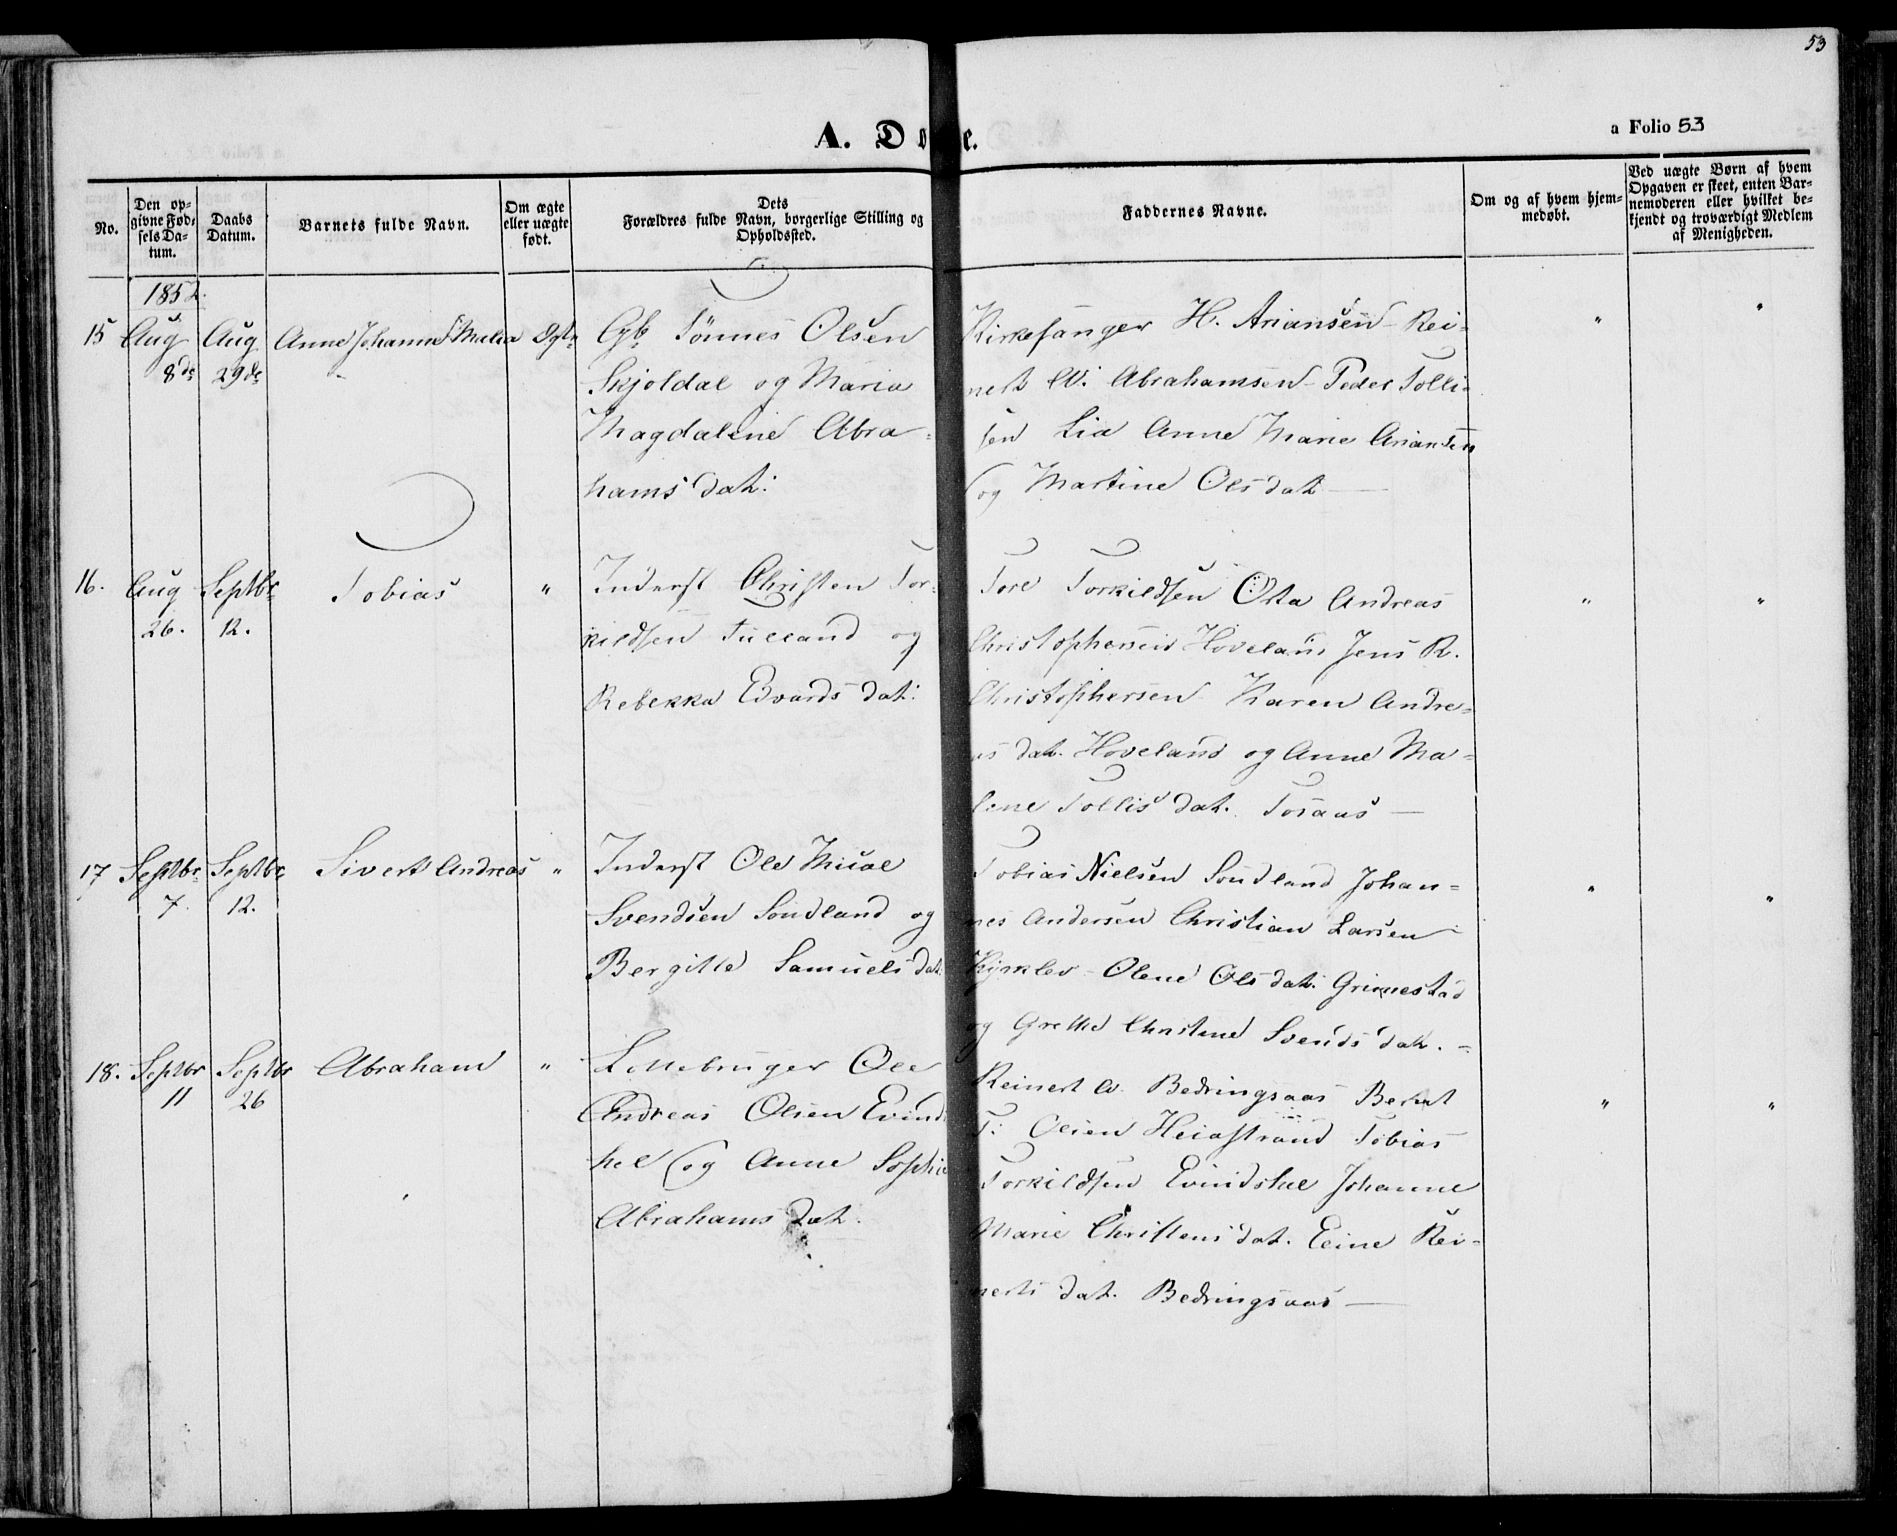 53
a Folio 53
A. Dø e.
No.
Den op-
givne Fød-
sels Da-
tum.
Daabs
Datum.
Barnets fulde Navn.
Om ægte
eller uægte
født.
Dets
Forældres fulde Navn, borgerlige Stilling og
Opholdssted.
Faddernes Navne.
Om og af hvem hjem-
medøbt.
Ved uægte Børn af hvem
Opgaven er skeet, enten Bar-
nemoderen eller hvilket be-
kjendt og troværdigt Medlem
af Menigheden.
1852.
15 Aug 8de Aug 29de Anne Johanne Malea Ægte
Gb. Tønnes Olsen
Skjoldal og Maria
Magdalene Abra-
hams dat:
Kirkesanger H. Ariansen - Rei-
nert A. Abrahamsen - Peder Tolli-
sen Lia Anne Marie Ariansen
og Martine Olsdat —
" "
16. Aug 26. Septbr 12. Tobias "
Inderst Christen Tor-
kildsen Tulland og
Rebekka Edvards dat:
Tore Torkildsen Osta Andreas
Christophersen Hoveland Jens R.
Christophersen Karen Andre-
as dat. Hoveland og Anne Ma-
lene Tollis dat. Tosaas —
" "
17 Septbr. 7. Septbr. 12. Sivert Andreas "
Inderst Ole Mical
Svendsen Sondland og
Bergitte Samuels dat
Tobias Nielsen Sondland Johan-
nes Andersen Christian Larsen
Olene Ols dat. Grimestad
og Grethe Christene Svends dat. -
" "
18. Septbr 11 Septbr 26 Abraham "
Ole
Andreas Olsen Evind
hel og Anne Sophie
Abrahams dat.
Reinert A. Bedringsaas Bernt
T. Olsen Heiastrand Tobias
Torkildsen Evindshel Johanne
Marie Christens dat. Eeine Rei-
nerts dat. Bedringsaas —
" "